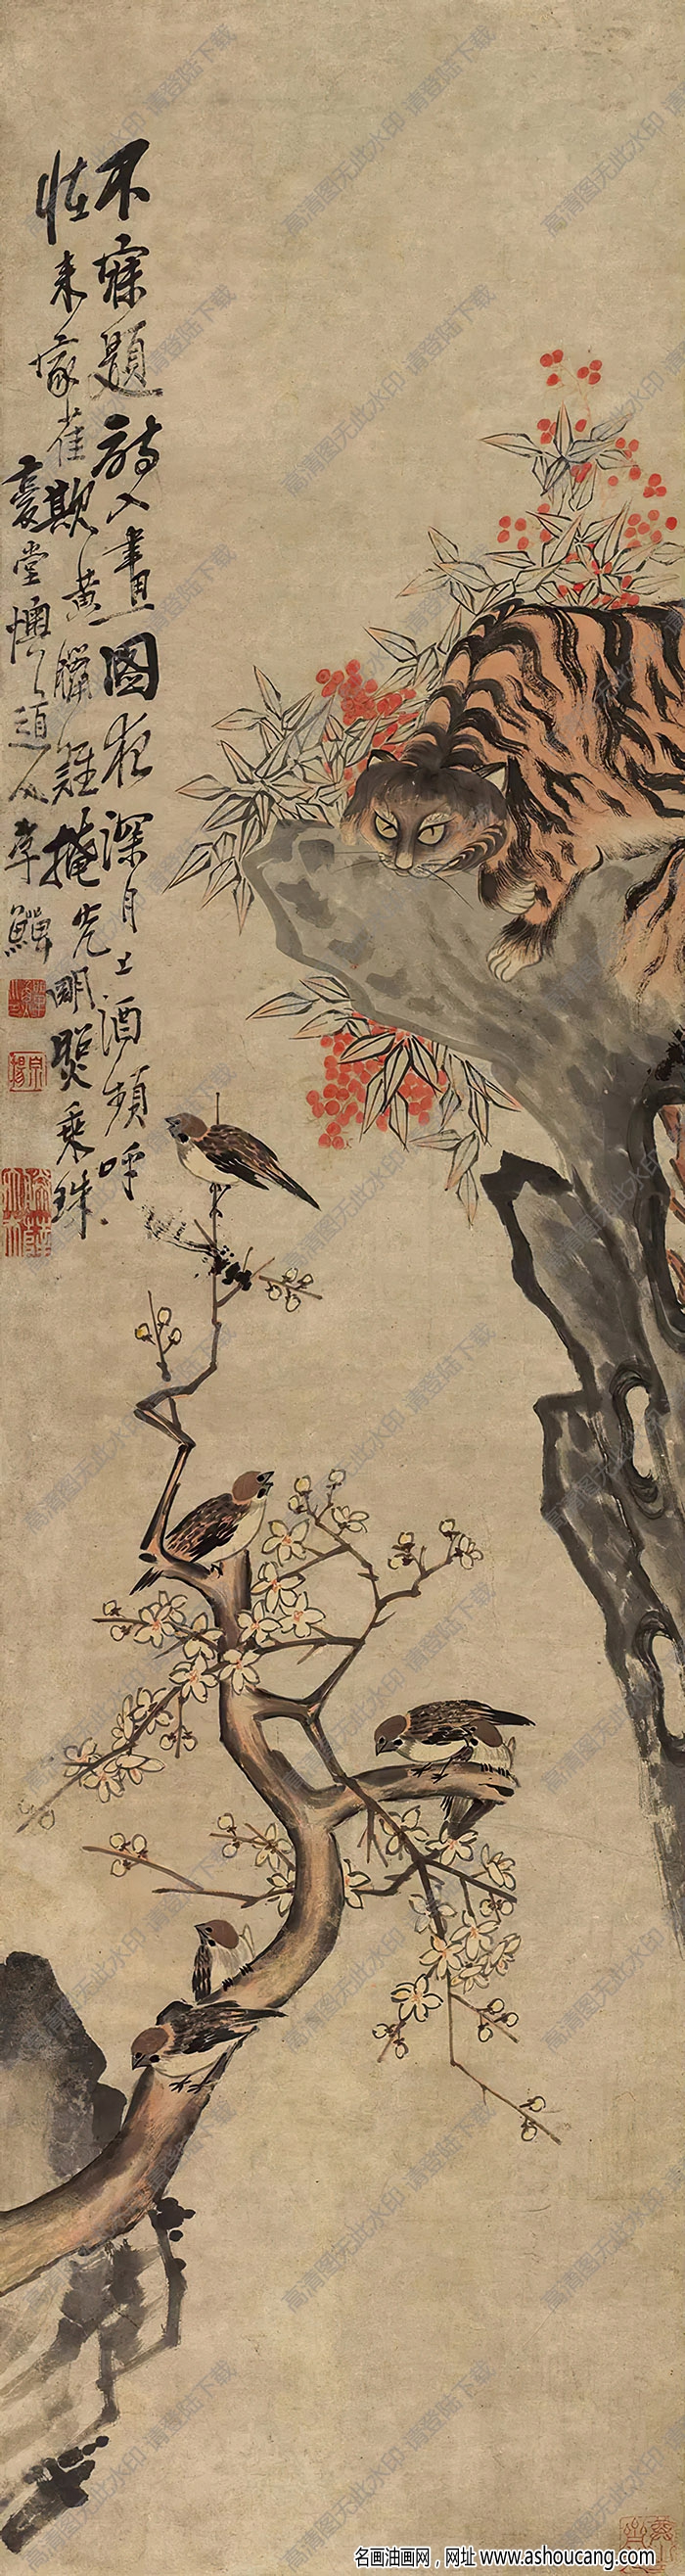 不寐題詩入畫圖夜深月上酒頻呼
怪来家雀欺黄臘難掩光明照乘珠
堂懊道人李鱓
高清图无此水印 请登陆下载
名画油画网，网址 www.ashoucang.com